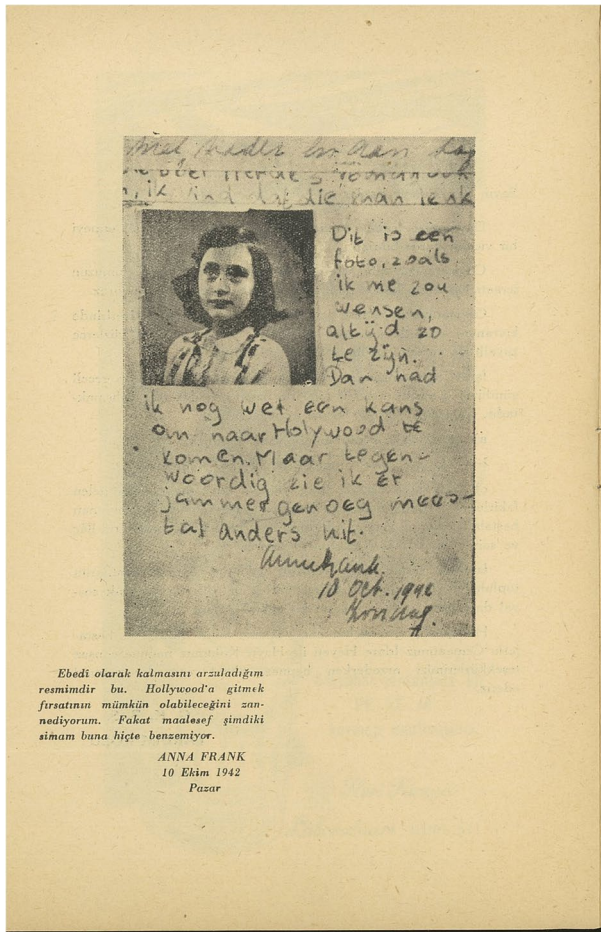 met vader en aan
ik vind dat die man
Dit is een
foto, zoals
ik me zou
wensen,
altijd zo
te zijn.
Dan had
ik nog wel een kans
om naar Holywood te
komen. Maar tegen-
woordig zie ik er
jammer genoeg mees-
tal anders uit.
Annefrank.
10 Oct. 1942
Zondag.
Ebedî olarak kalmasını arzuladığım
resmimdir bu. Hollywood'a gitmek
fırsatının mümkün olabileceğini zan-
nediyorum. Fakat maalesef şimdiki
simam buna hiçte benzemiyor.
ANNA FRANK
10 Ekim 1942
Pazar